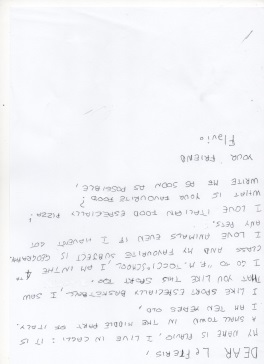 DEAR LEFTERIS,
MY NAME IS FLAVIO. I LIVE IN CAGLI: IT IS
A SMALL TOWN IN THE MIDDLE PART OF ITALY.
I AM TEN YEARES OLD.
I LIKE SPORT ESPECIALLY BASKETBALL, I SAW
THAT YOU LIKE THIS SPORT TOO.
I GO TO "F. M. TOCCI" SCHOOL. I AM IN THE 4TH
CLASS AND MY FAVOURITE SUBJECT IS GEOGRAPHY.
I LOVE ANIMALS EVEN IF I HAVENT GOT
ANY PETS.
I LOVE ITALIAN FOOD ESPECIALLY PIZZA.
WHAT IS YOUR FAVOURITE FOOD?
WRITE ME AS SOON AS POSSIBLE,
YOUR FRIEND
Flavio